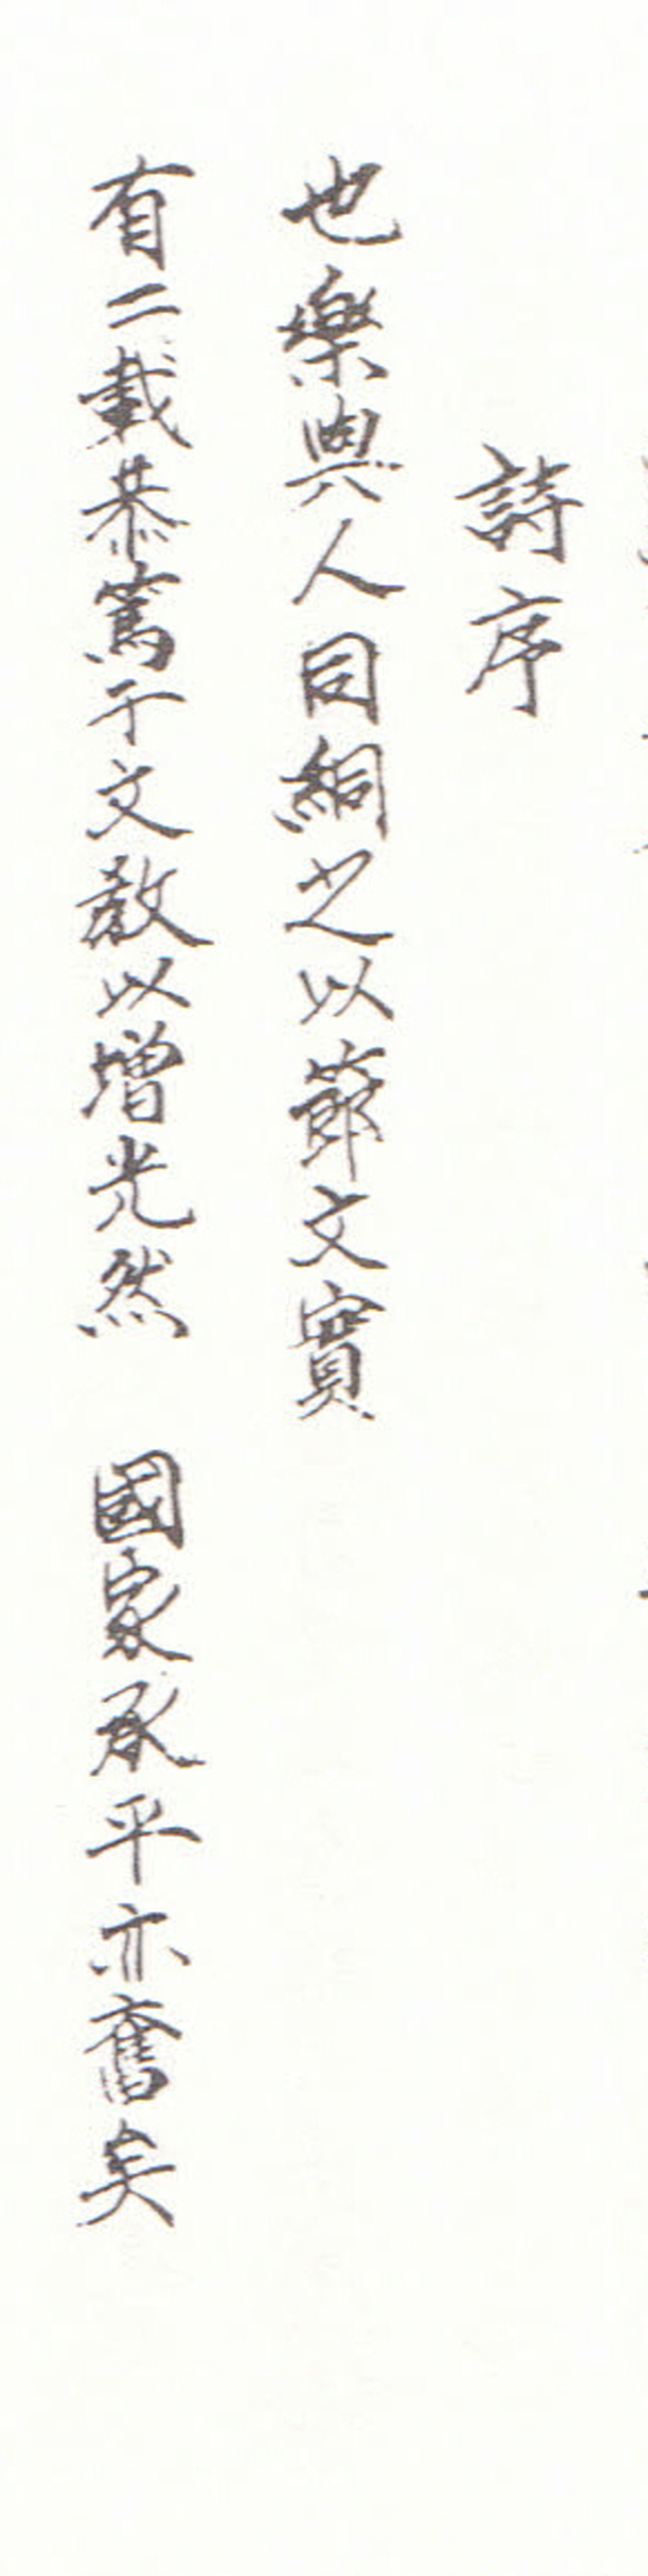 詩序
也樂與人同絅之以節文實
有二載恭篤于文教以增光然　國家承平亦奮矣